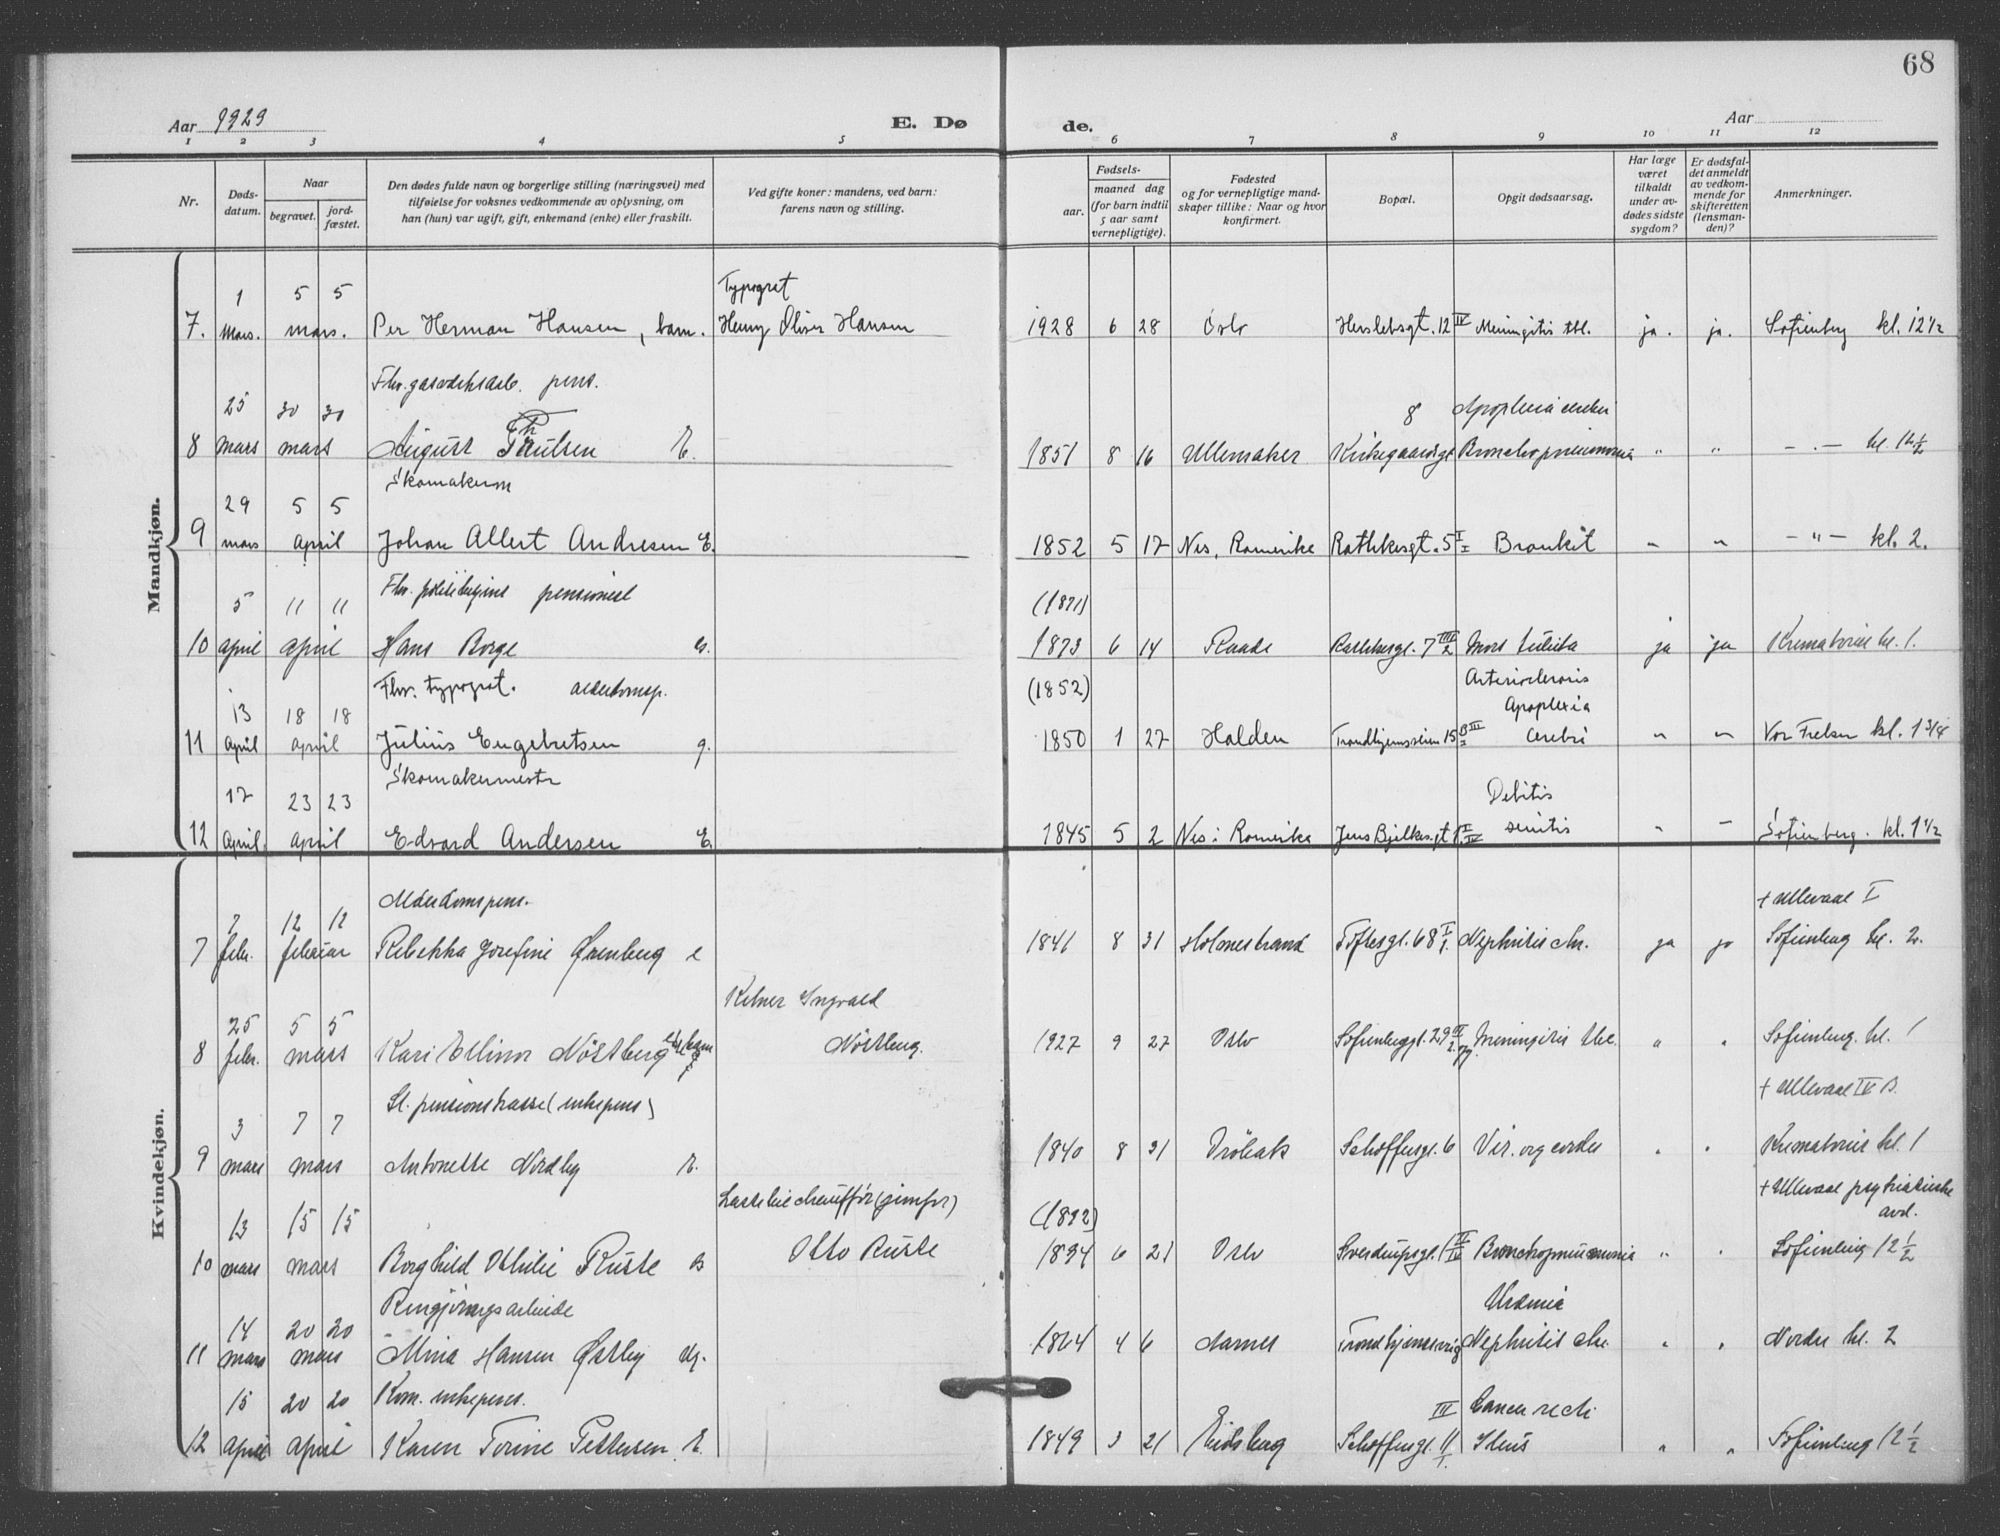 68
Aar 1929 E. Dø de. Aar
1 2 3 4 5 6 7 8 9 10 11 12
Nr.
Døds-
datum.
Naar
begravet.
jord-
fæstet.
Den dødes fulde navn og borgerlige stilling (næringsvei) med
tilføielse for voksnes vedkommende av oplysning, om
han (hun) var ugift, gift, enkemand (enke) eller fraskilt.
Ved gifte koner: mandens, ved barn:
farens navn og stilling.
Fødsels-
aar.
maaned dag
(for barn indtil
5 aar samt
vernepligtige).
Fødested
og for vernepligtige mand-
skaper tillike: Naar og hvor
konfirmert.
Bopæl.
Opgit dødsaarsag.
Har læge
været
tilkaldt
under av-
dødes sidste
sygdom?
Er dødsfal-
det anmeldt
av vedkom-
mende for
skifteretten
(lensman-
den)?
Anmerkninger.
Mandkjøn.
1 5 5 Typograf
7. Mars. mars. Per Herman Hansen, barn. Henry Oliver Hansen 1928 6 28 Oslo Herslebsgt. 12 IV Meningitis tbl. ja. ja. Sofienberg kl. 12 1/2
Fhv. gasverksarb. pens.
25 30 30 8 Apoplexia cerebri
8 mars mars August Paulsen E. 1851 8 16 Ullensaker Kirkegaardsgt Bronchopneumonia " " — . — kl. 12 1/2
Skomakerm
29 5 5
9 mars april Johan Albert Andresen E. 1852 5 17 Nes, Romerike Rathkesgt. 5 I/I Bronkit " " — " — kl. 2.
Fhv. politibetjent pensionist
5 11 11 (1871)
10 april april Hans Borge G. 1873 6 14 Raade Rathkesgt. 7 III/2 Mors subita ja ja Krematoriet kl. 1.
Fhv. typograf. alderdomsp. (1852) Arteriosclerosis
13 18 18 Apoplexia
11 April april Julius Engebretsen g. 1850 1 27 Halden Trondhjemsveien 15 B III/I cerebri " " Vor Frelser kl. 1 3/4
Skomakermestr
17 23 23 Debitis
12 April. april Edvard Andersen E. 1845 5 2 Nes i Romerike Jens Bjelkesgt 1 I/IV senitis " " Sofienberg. kl. 1 1/2
Kvindekjøn.
Alderdomspens. + Ullevaal I
7 12 12
7 febr. februar Rebekka Josefine Ørenberg e 1841 8 31 Holmestrand Toftesgt. 68 I/1. Nephritis chr. ja ja Sofienberg kl. 2.
Kelner Ingvald
25 5 5
8 febr. mars Kari Ellinor Nöstberg barn Nöstberg. 1927 9 27 Oslo Sofienberggt. 29 Meningitis tbc. " " Sofienberg. kl. 1
St. pensionskasse (enkepens) + Ullevaal IV B.
3 7 7
9 mars mars Antonette Nordby E. 1840 8 31 Dröbak Schøffersgt. 6 Vit. org cordis " " Krematoriet kl. 1
Lastebilchauffør (jernfor) + Ullevaal psykiatriske
13 15 15 (1892) avd.
10 mars mars Borghild Othilie Ruste G Otto Ruste 1894 6 21 Oslo Sverdrupsgt. 1 III/IV Bronchopneumonia " " Sofienberg 12 1/2
Rengjöringsarbeide Uræmia
14 20 20
11 mars mars Mina Hansen Østby Ug. 1864 4 6 Aarnes Trondhjemsveig Nephritis chr. " " Nordre kl. 2
Kom. enkepens.
15 20 20 III Cancer recti
12 april april Karen Torine Pettersen. E. 1849 3 21 Eidsberg Schøffersgt. 11 I. Ileus " " Sofienberg 12 1/2